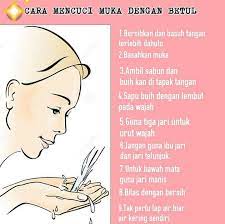 CARA MENCUCI MUKA DENGAN BETUL
1.Bersihkan dan basuh tangan
terlebih dahulu
2.Basahkan muka
3.Ambil sabun dan
buih kan di tapak tangan
4.Sapu buih dengan lembut
pada wajah
5.Guna tiga jari untuk
urus wajah
6.Jangan guna ibu jari
dan jari telunjuk.
7.Untuk bawah mata
guna jari manis
8.Bilas dengan bersih
9.Tak perlu lap air,biar
air kering sendiri